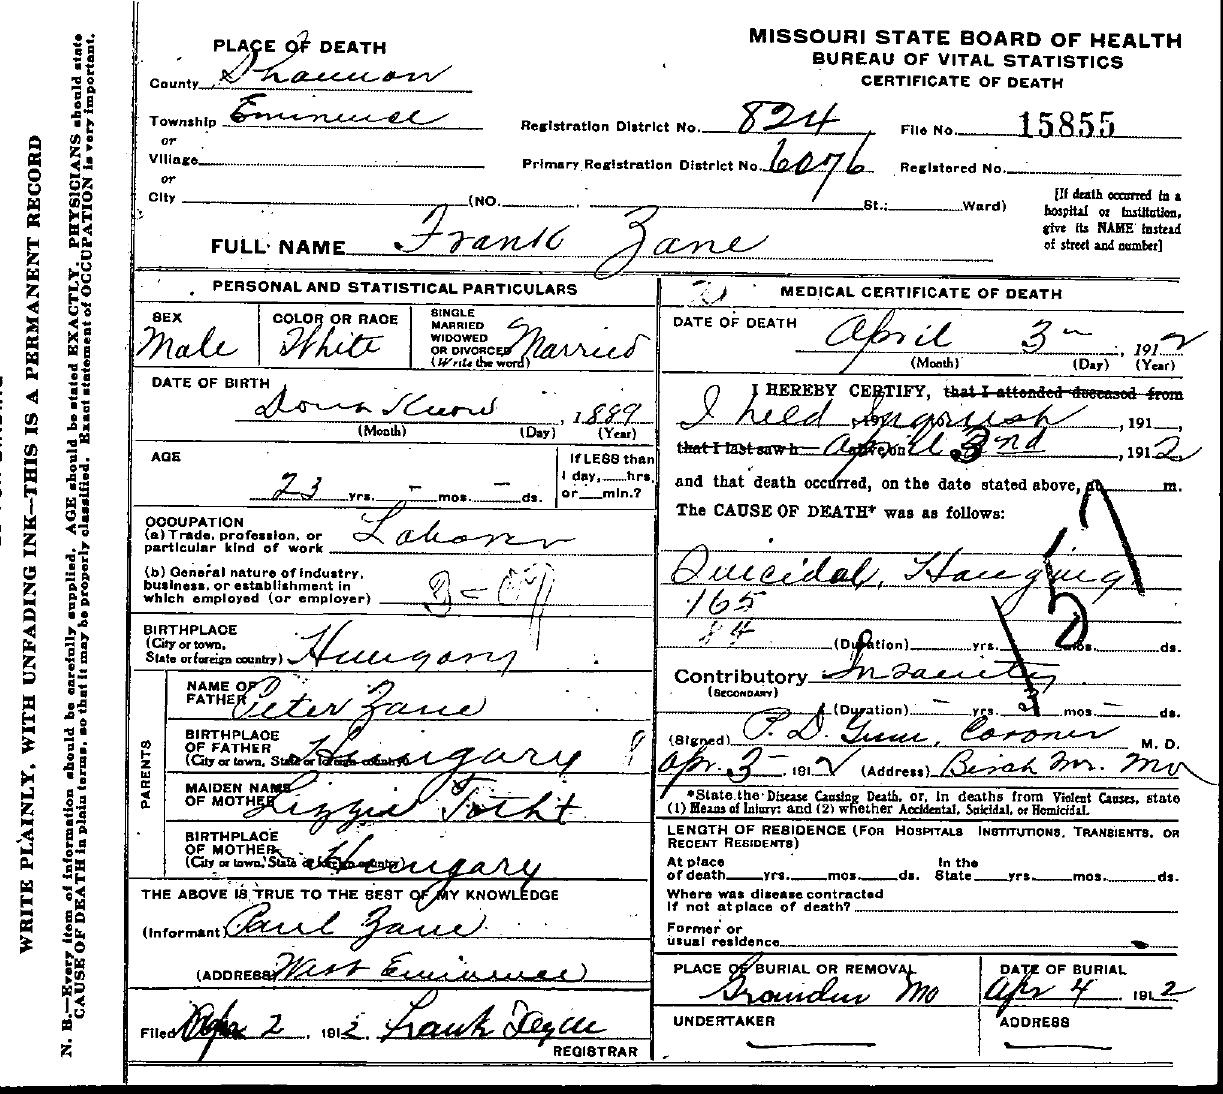 MISSOURI STATE BOARD OF HEALTH
BUREAU OF VITAL STATISTICS
CERTIFICATE OF DEATH
PLACE OF DEATH
County Shannon
Township Eminence
or
Village
or
City (NO. St.; Ward)
Registration District No. 824
File No. 15855
Primary Registration District No. 6076
Registered No.
[If death occurred in a
hospital or institution,
give its NAME instead
of street and number]
FULL NAME Frank Zane
PERSONAL AND STATISTICAL PARTICULARS
SEX
Male
COLOR OR RACE
White
SINGLE
MARRIED
WIDOWED
OR DIVORCED
(Write the word)
Married
DATE OF BIRTH
Dont Know, 1889
(Month) (Day) (Year)
AGE
23 yrs. - mos. - ds.
If LESS than
1 day, hrs.
or min.?
OCCUPATION
(a) Trade, profession, or
particular kind of work Laborer
(b) General nature of industry,
business, or establishment in
which employed (or employer)
BIRTHPLACE
(City or town,
State or foreign country) Hungary
PARENTS
NAME OF
FATHER Peter Zane
BIRTHPLACE
OF FATHER
(City or town, State or foreign country) Hungary
MAIDEN NAME
OF MOTHER Lizzie
BIRTHPLACE
OF MOTHER
(City or town, State or foreign country) Hungary
THE ABOVE IS TRUE TO THE BEST OF MY KNOWLEDGE
(Informant) Paul Zane
(ADDRESS) West Eminence
Filed Apr 2, 1912. Frank
REGISTRAR
MEDICAL CERTIFICATE OF DEATH
DATE OF DEATH
April 3, 1912
(Month) (Day) (Year)
I HEREBY CERTIFY, that I attended deceased from
I held Inquest, 191,
that I last saw h alive on April 3nd, 1912
and that death occurred, on the date stated above, at m.
The CAUSE OF DEATH* was as follows:
Suicidal, Hanging
165
84
(Duration) yrs. mos. ds.
Contributory Insanity
(SECONDARY)
(Duration) yrs. mos. ds.
(Signed) P. D. Gum, Coroner M. D.
Apr. 3 1912 (Address) Birch Tr. Mo
*State the Disease Causing Death, or, in deaths from Violent Causes, state
(1) Means of Injury; and (2) whether Accidental, Suicidal, or Homicidal.
LENGTH OF RESIDENCE (FOR HOSPITALS INSTITUTIONS, TRANSIENTS, OR
RECENT RESIDENTS)
At place
of death yrs. mos. ds.
In the
State yrs. mos. ds.
Where was disease contracted
if not at place of death?
Former or
usual residence
PLACE OF BURIAL OR REMOVAL
Grandin Mo
DATE OF BURIAL
Apr 4 1912
UNDERTAKER
ADDRESS
WRITE PLAINLY, WITH UNFADING INK—THIS IS A PERMANENT RECORD
N. B.—Every item of information should be carefully supplied. AGE should be stated EXACTLY. PHYSICIANS should state
CAUSE OF DEATH in plain terms, so that it may be properly classified. Exact statement of OCCUPATION is very important.